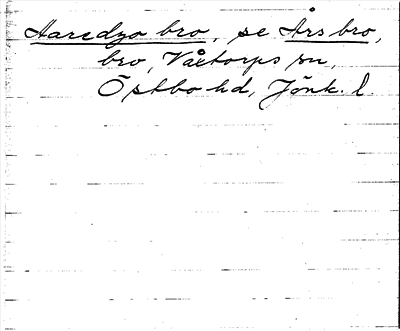 Aaredzo bro, se Års bro,
bro, Våxtorps sn,
Östbo hd, Jönk. l.